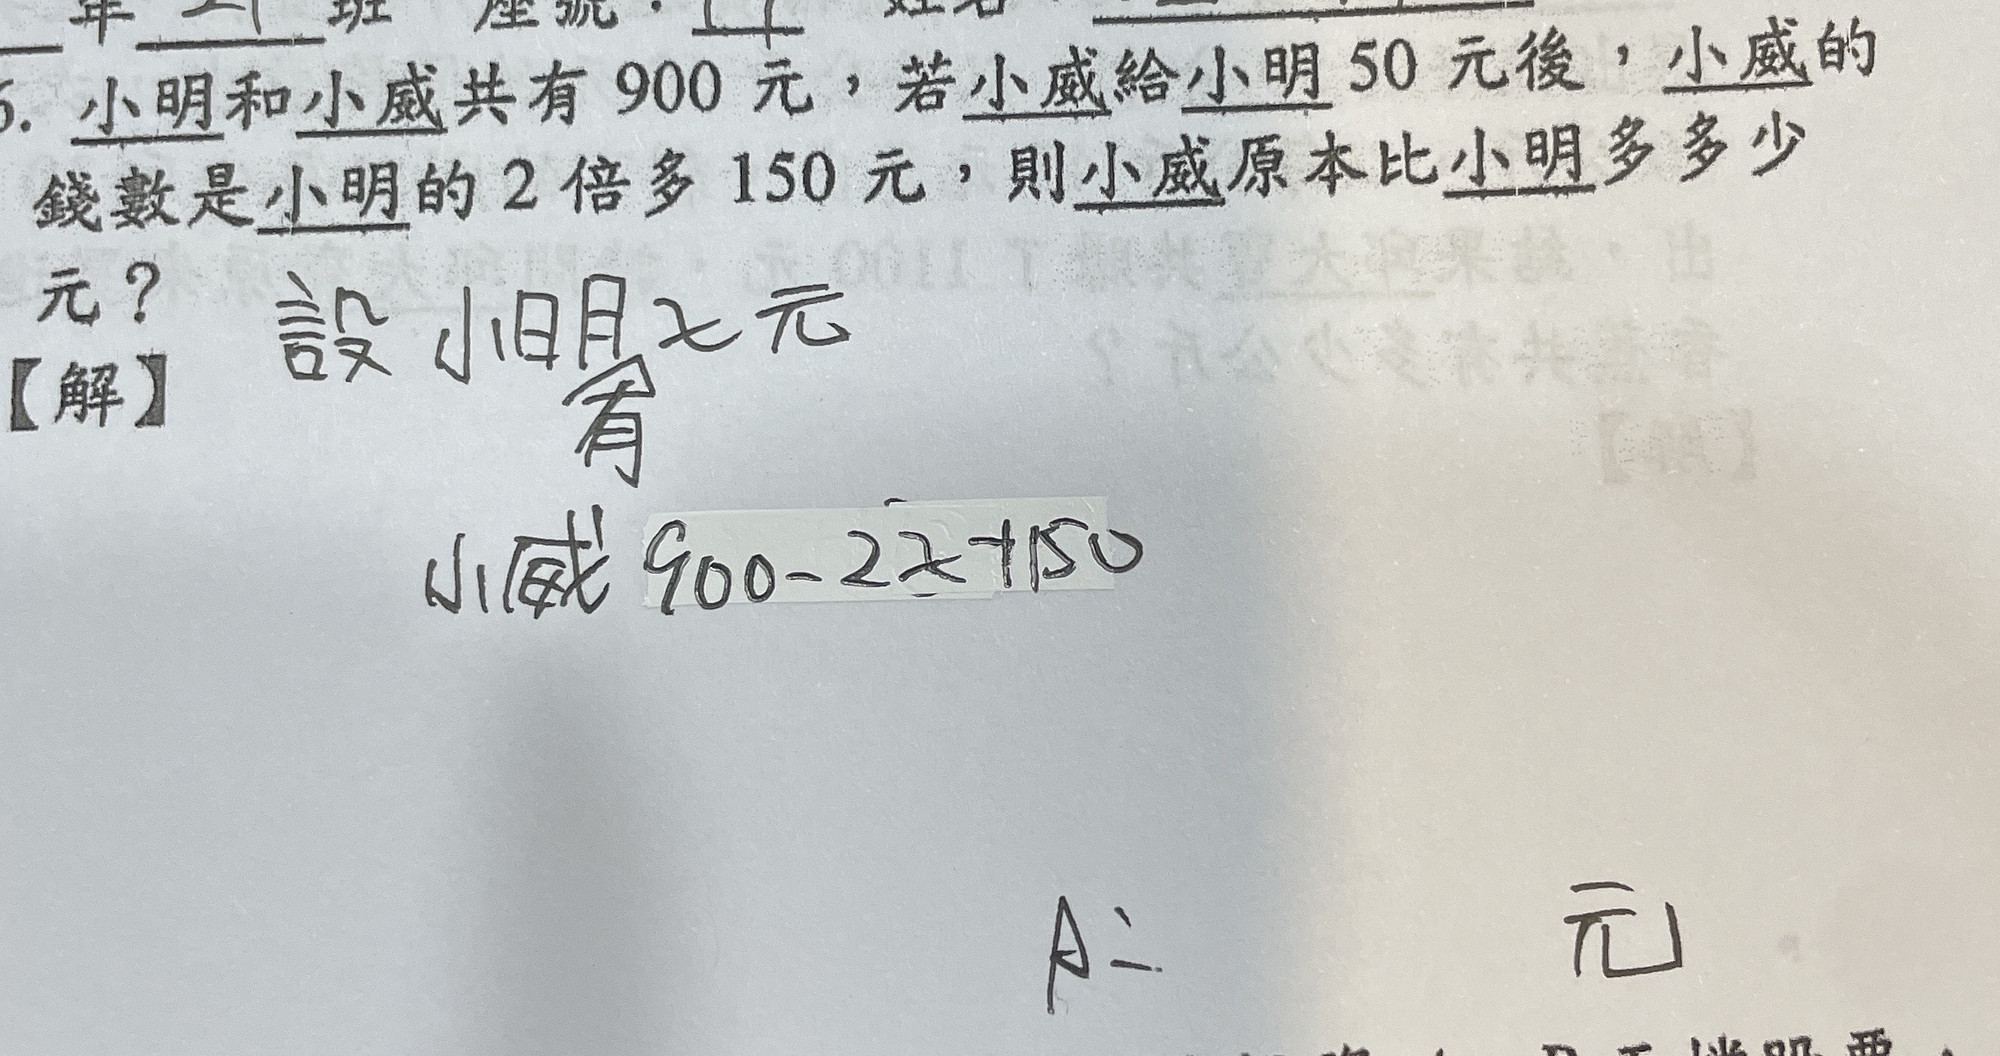 年 21 班 座號:
6. 小明和小威共有 900 元,若小威給小明 50 元後,小威的
錢數是小明的 2 倍多 150 元,則小威原本比小明多多少
元?
【解】 設 小明 x 元
有
小威 900-2x+150
A: 元